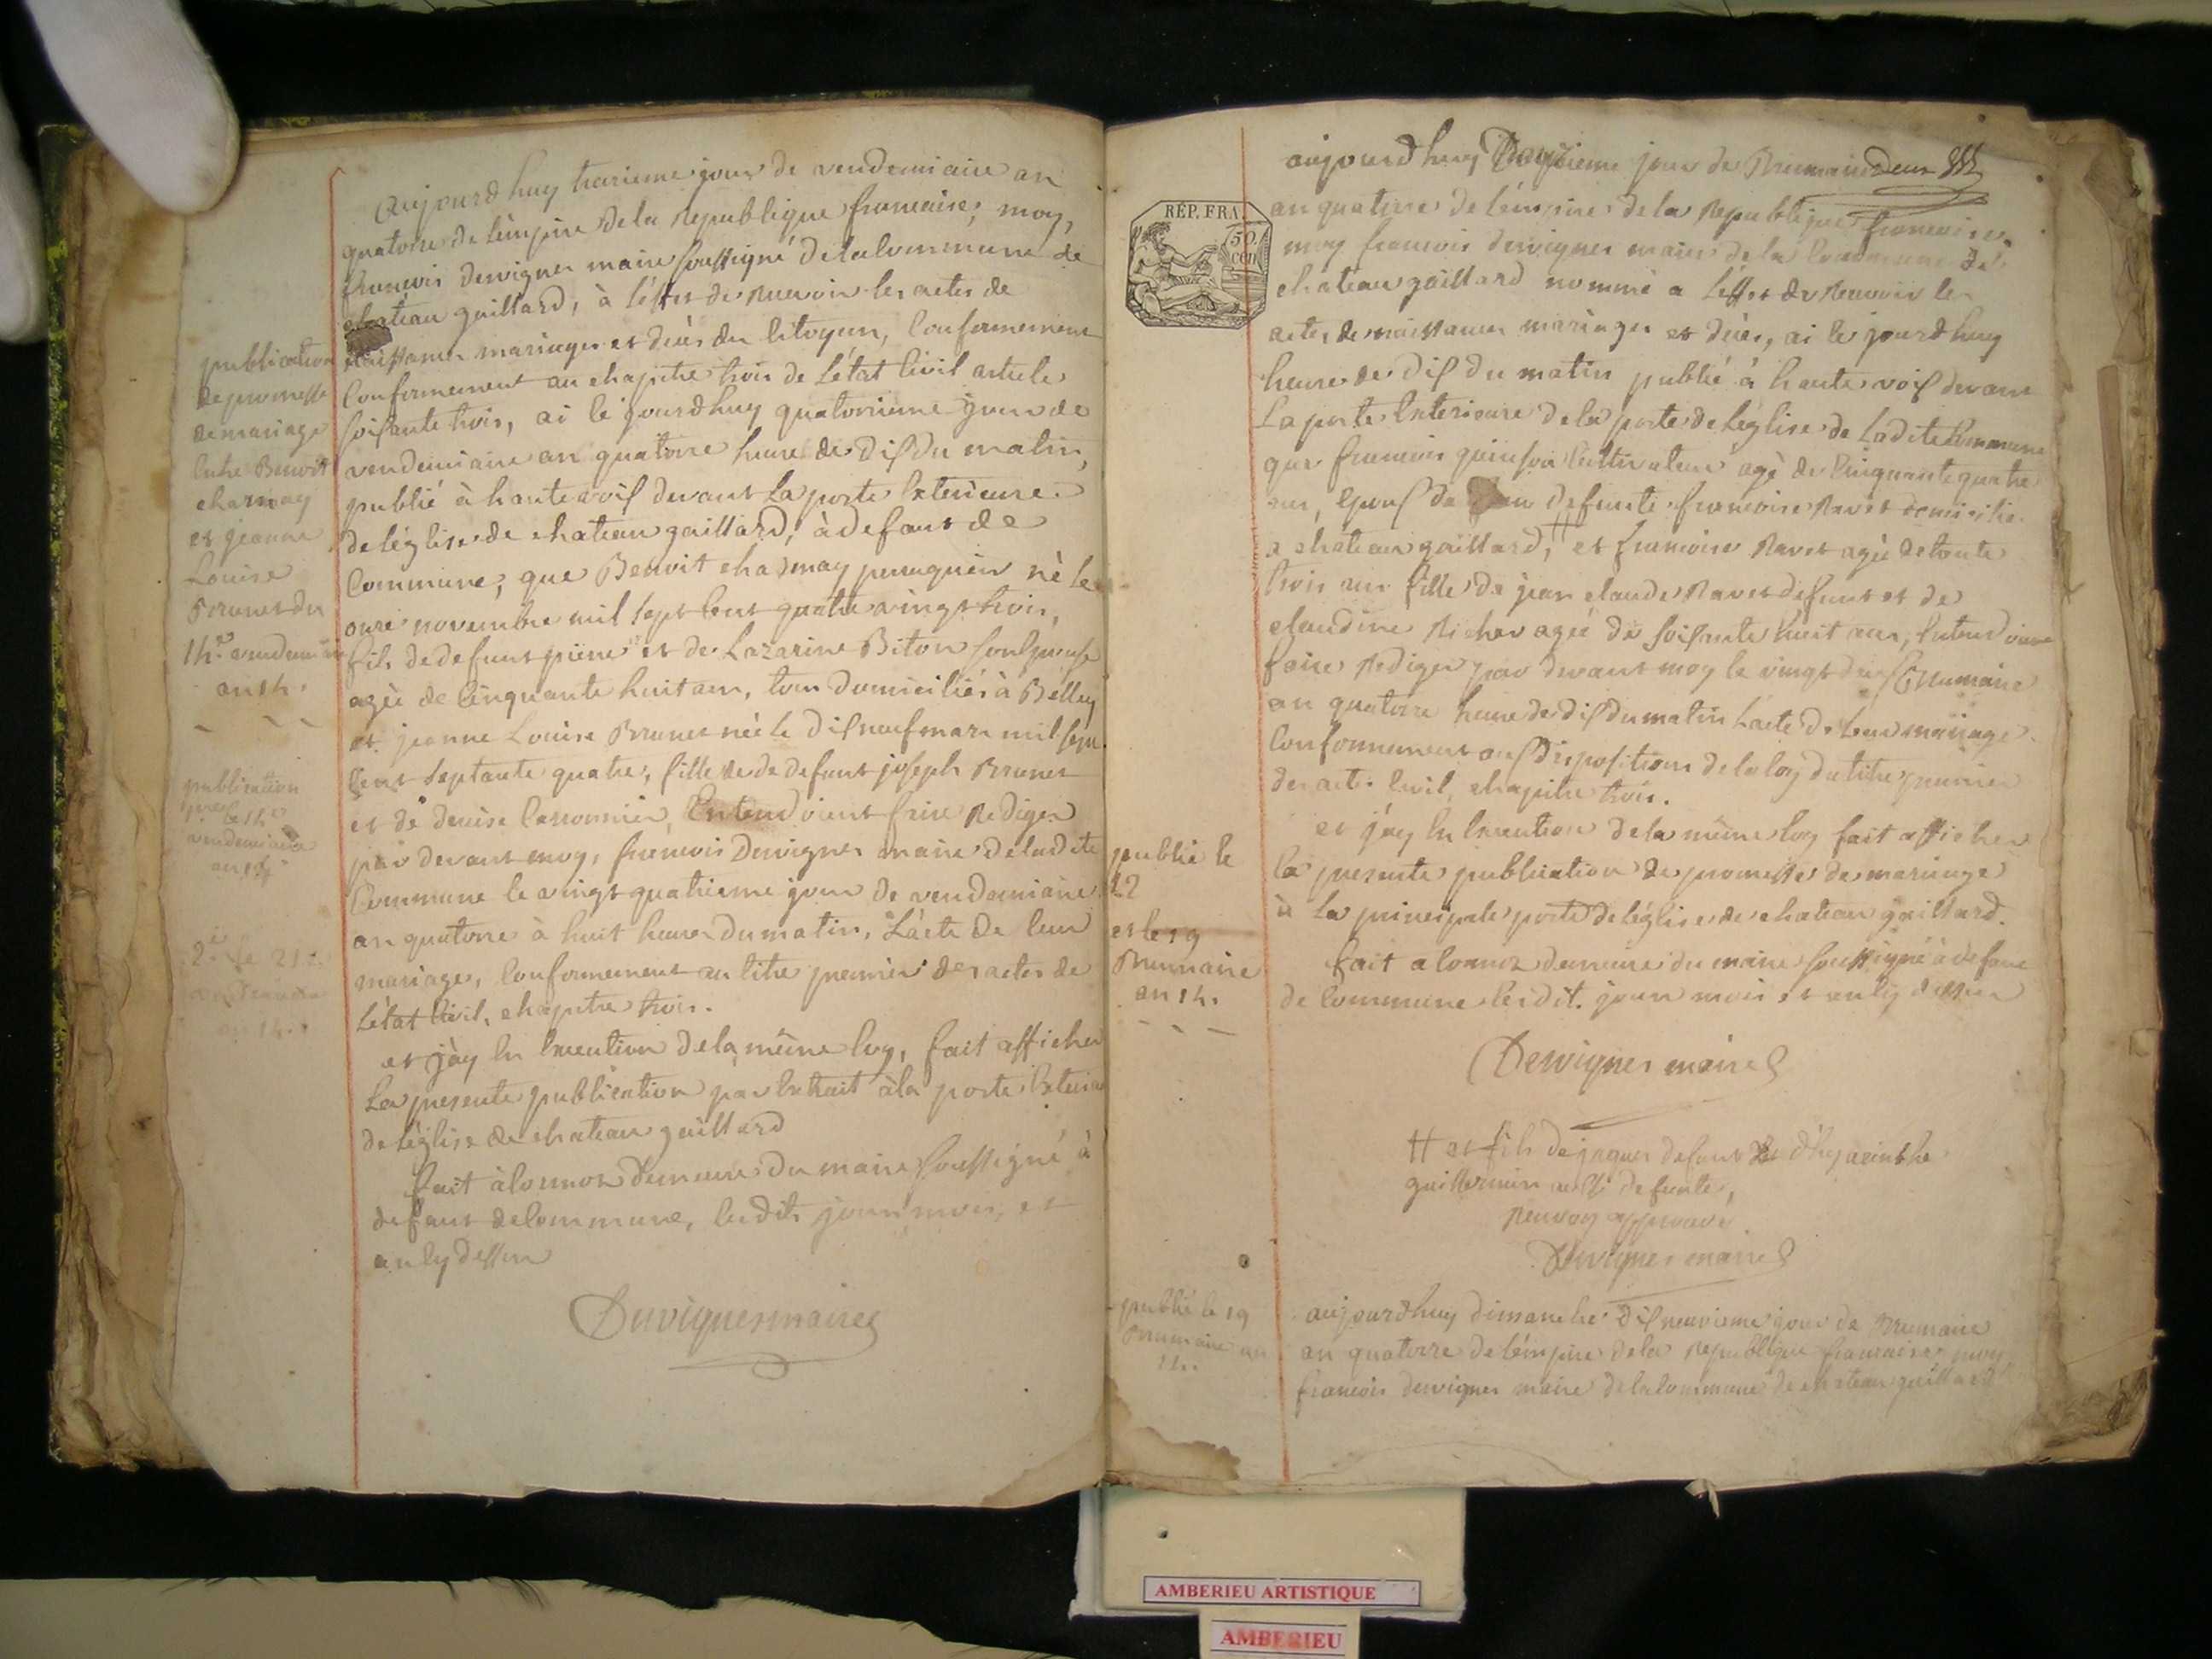 aujourdhuy treizieme jour de vendemiaire an
quatorze de lémpire de la Republique francaise, moy,
francois dervignes maire soussigné de la Commune de
chateau gaillard, à léffet de recevoir les actes de
naissances mariages et décès des Citoyens, Conformement
Conformement au chapitre trois de létat Civil article
soisante trois, ai le jourdhuy quatorzieme jour de
vendemiaire an quatorze heure de dis du matin,
publié à haute vois devant la porte Exterieure
de léglise de chateau gaillard, à defaut de
Commune, que Benoit charmay peruquier né le
onze novembre mil sept Cent quatre vingt trois,
fils de defunt pierre et de Lazarine Biton son Epouse
agée de Cinquante huit ans, tous domiciliés à Belley
et jeanne Louise Brunet née le dis neuf mars mil sept
Cent Septante quatre, fille de defunt joseph Brunet
et de denise , Entendoient faire Rediger
par devant moy, francois Dervignes maire de ladite
Commune le vingt quatrieme jour de vendemiaire
an quatorze à huit heures du matin, Lacte de leur
mariage, Conformement au titre premier des actes de
Létat Civil, chapitre trois.
et jày En Execution de la même loy, fait afficher
La presente publication par Extrait à la porte Exterieure
de léglise de chateau gaillard
fait à lonnoz demeure du maire soussigné à
defaut de Commune, lesdits jour mois, et
an Cy dessus
Dervignes maire
publication
de promesse
de mariage
Entre Benoit
charmay
et jeanne
Louise
Brunet du
14.e vendemiaire
an 14.
publication
le 14.e
vendemiaire
an 14
2.e le 21
vendemiaire
an 14.
aujourdhuy jour de Brumaire
REP. FRA.
50.
CEN
an quatorze de lémpire de la Republique francaise
moy francois dervignes maire de la Commune de
chateau gaillard nommé a léffet de Recevoir les
actes de naissances mariages et décès, ai le jourdhuy
heure de dis du matin publié à haute vois devant
La porte Exterieure de la porte de léglise de Ladite Commune
que francois Cultivateur agé de Cinquante quatre
ans, Epous de defunte francoise Ravet domicilié
a chateau gaillard, # et francoise Ravet agée de trente
trois ans fille de jean claude Ravet defunt et de
claudine Richer agée de soisante huit ans, Entendoient
faire Rediger par devant moy le vingt dis Brumaire
an quatorze heure de dis du matin Lacte de leur mariage
Conformement aus dispositions de la loy du titre premier
des actes Civil, chapitre trois.
et jày En Execution de la même loy fait afficher
la presente publication de promesse de mariage
à La principale porte de léglise de chateau gaillard.
fait a lonnoz demeure du maire soussigné à defaut
de Commune lesdit. jour mois et an Cy dessus
Dervignes maire
# et fils de jaques defunt et d'hyacinthe
guillermin aussi defunte,
Renvoy approuvé
Dervignes maire
publié le
12
et le 19
Brumaire
an 14.
publié le 19
Brumaire an
14.
aujourdhuy dimanche dis neuvieme jour de Brumaire
an quatorze de lémpire de la Republique francaise moy
francois dervignes maire de la Commune de chateau gaillard
AMBERIEU ARTISTIQUE
AMBERIEU